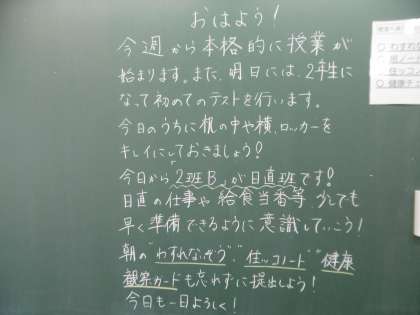 おはよう！
今週から本格的に授業が
始まります。また、明日には、2年生に
なって初めてのテストを行います。
今日のうちに机の中や横、ロッカーを
キレイにしておきましょう！
今日から「2班B」が日直班です！
日直の仕事や給食当番等、少しでも
早く準備できるように意識していこう！
朝の"わすれないぞう"、"住ッコノート""健康
観察カード"も忘れずに提出しよう！
今日も一日よろしく！
わすれ
住ッコ
健康チェ